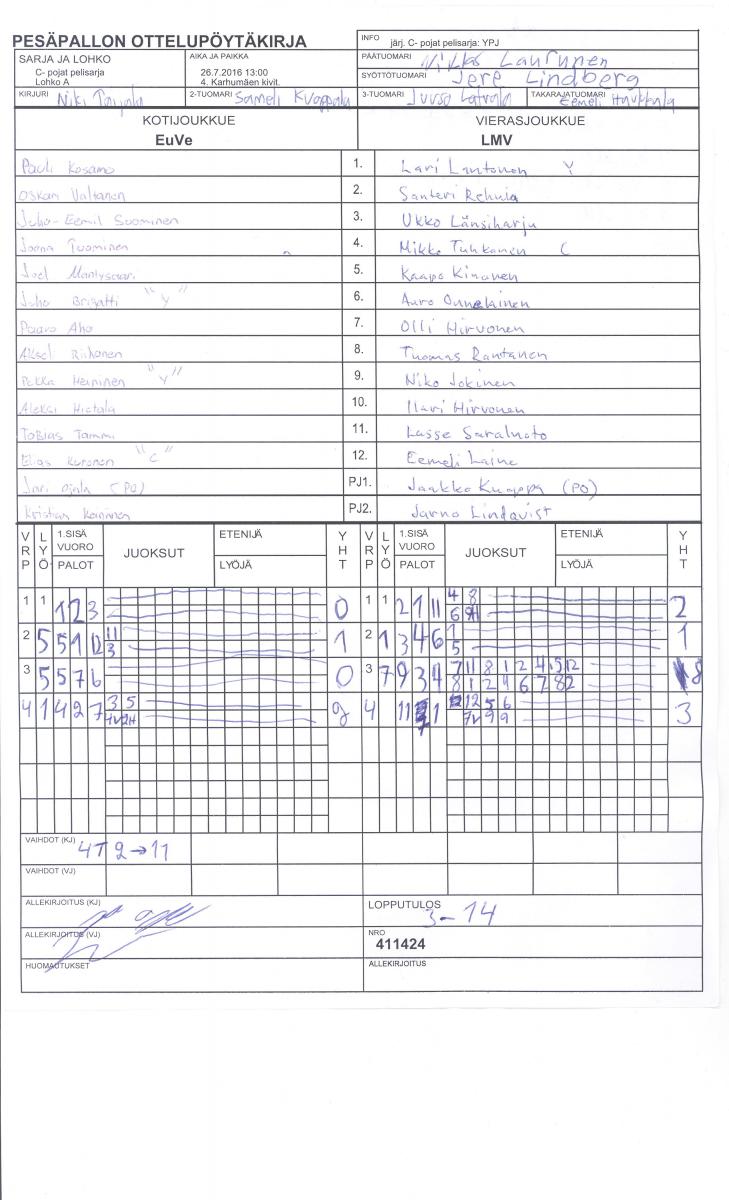 PESÄPALLON OTTELUPÖYTÄKIRJA
INFO järj. C- pojat pelisarja: YPJ
SARJA JA LOHKO
C- pojat pelisarja
Lohko A
AIKA JA PAIKKA
26.7.2016 13:00
4. Karhumäen kivit.
PÄÄTUOMARI Niklas Laurunen
SYÖTTÖTUOMARI Jere Lindberg
KIRJURI Niki
2-TUOMARI Sameli Kuoppala
3-TUOMARI Juuso Latvala
TAKARAJATUOMARI Eemeli Haukkala
KOTIJOUKKUE
EuVe
VIERASJOUKKUE
LMV
Pauli Kosamo 1. Lari Lantonen Y
Oskari Valtanen 2. Santeri Rehula
Juho-Eemil Suominen 3. Ukko Länsiharju
Joona Tuominen 4. Mikko Tuhkanen C
Joel Mäntysaari 5. Kaapo Kinunen
Juho Brigatti "Y" 6. Auro Onnelainen
Paavo Aho 7. Olli Hirvonen
Aksel Riihonen 8. Tuomas Rantanen
Pekka Heininen "Y" 9. Niko Jokinen
Aleksi Hietala 10. Ilari Hirvonen
Tobias Tammi 11. Lasse Saraluoto
Elias Kuronen "C" 12. Eemeli Laine
Jari Ojala (PO) PJ1. Jaakko Kuoppa (PO)
Kristian Kaininen PJ2. Jarno Lindqvist
VRP LYÖ 1.SISÄ VUORO PALOT JUOKSUT ETENIJÄ LYÖJÄ YHT
VRP LYÖ 1.SISÄ VUORO PALOT JUOKSUT ETENIJÄ LYÖJÄ YHT
1 1 1 2 3 0 1 1 2 1 11 4 8 2
6
2 5 5 1 12 11 1 2 1 3 4 6 1 1
3 5
3 5 5 7 6 0 3 7 9 3 4 7 11 8 1 2 4 5 12 8
8 1 2 4 6 7 8 2
4 1 4 2 7 3 5 2 4 11 1 12 5 6 3
1V 2H 7V 9 9
VAIHDOT (KJ) 4T 9→11
VAIHDOT (VJ)
ALLEKIRJOITUS (KJ)
LOPPUTULOS 3-14
ALLEKIRJOITUS (VJ)
NRO 411424
HUOMAUTUKSET
ALLEKIRJOITUS